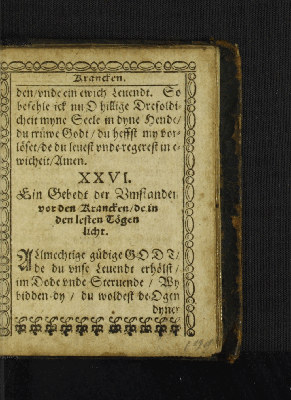 Krancken.
den/vnde ein ewich Leuendt. So
befehle ick nu O hillige Drefoldi-
cheit myne Seele in dyne Hende/
du trüwe Godt/du heffst my vor-
löset/de du leuest vnde regerest in e-
wicheit/Amen.
XXVI.
Ein Gebedt der Vmstander
vor den Krancken/de in
den lesten Tögen
licht.
ALlmechtige güdige GODT/
de du vnse Leuendt erhölst/
im Dode vnde Steruende/Wy
bidden dy/du woldest de Ogen
dyner